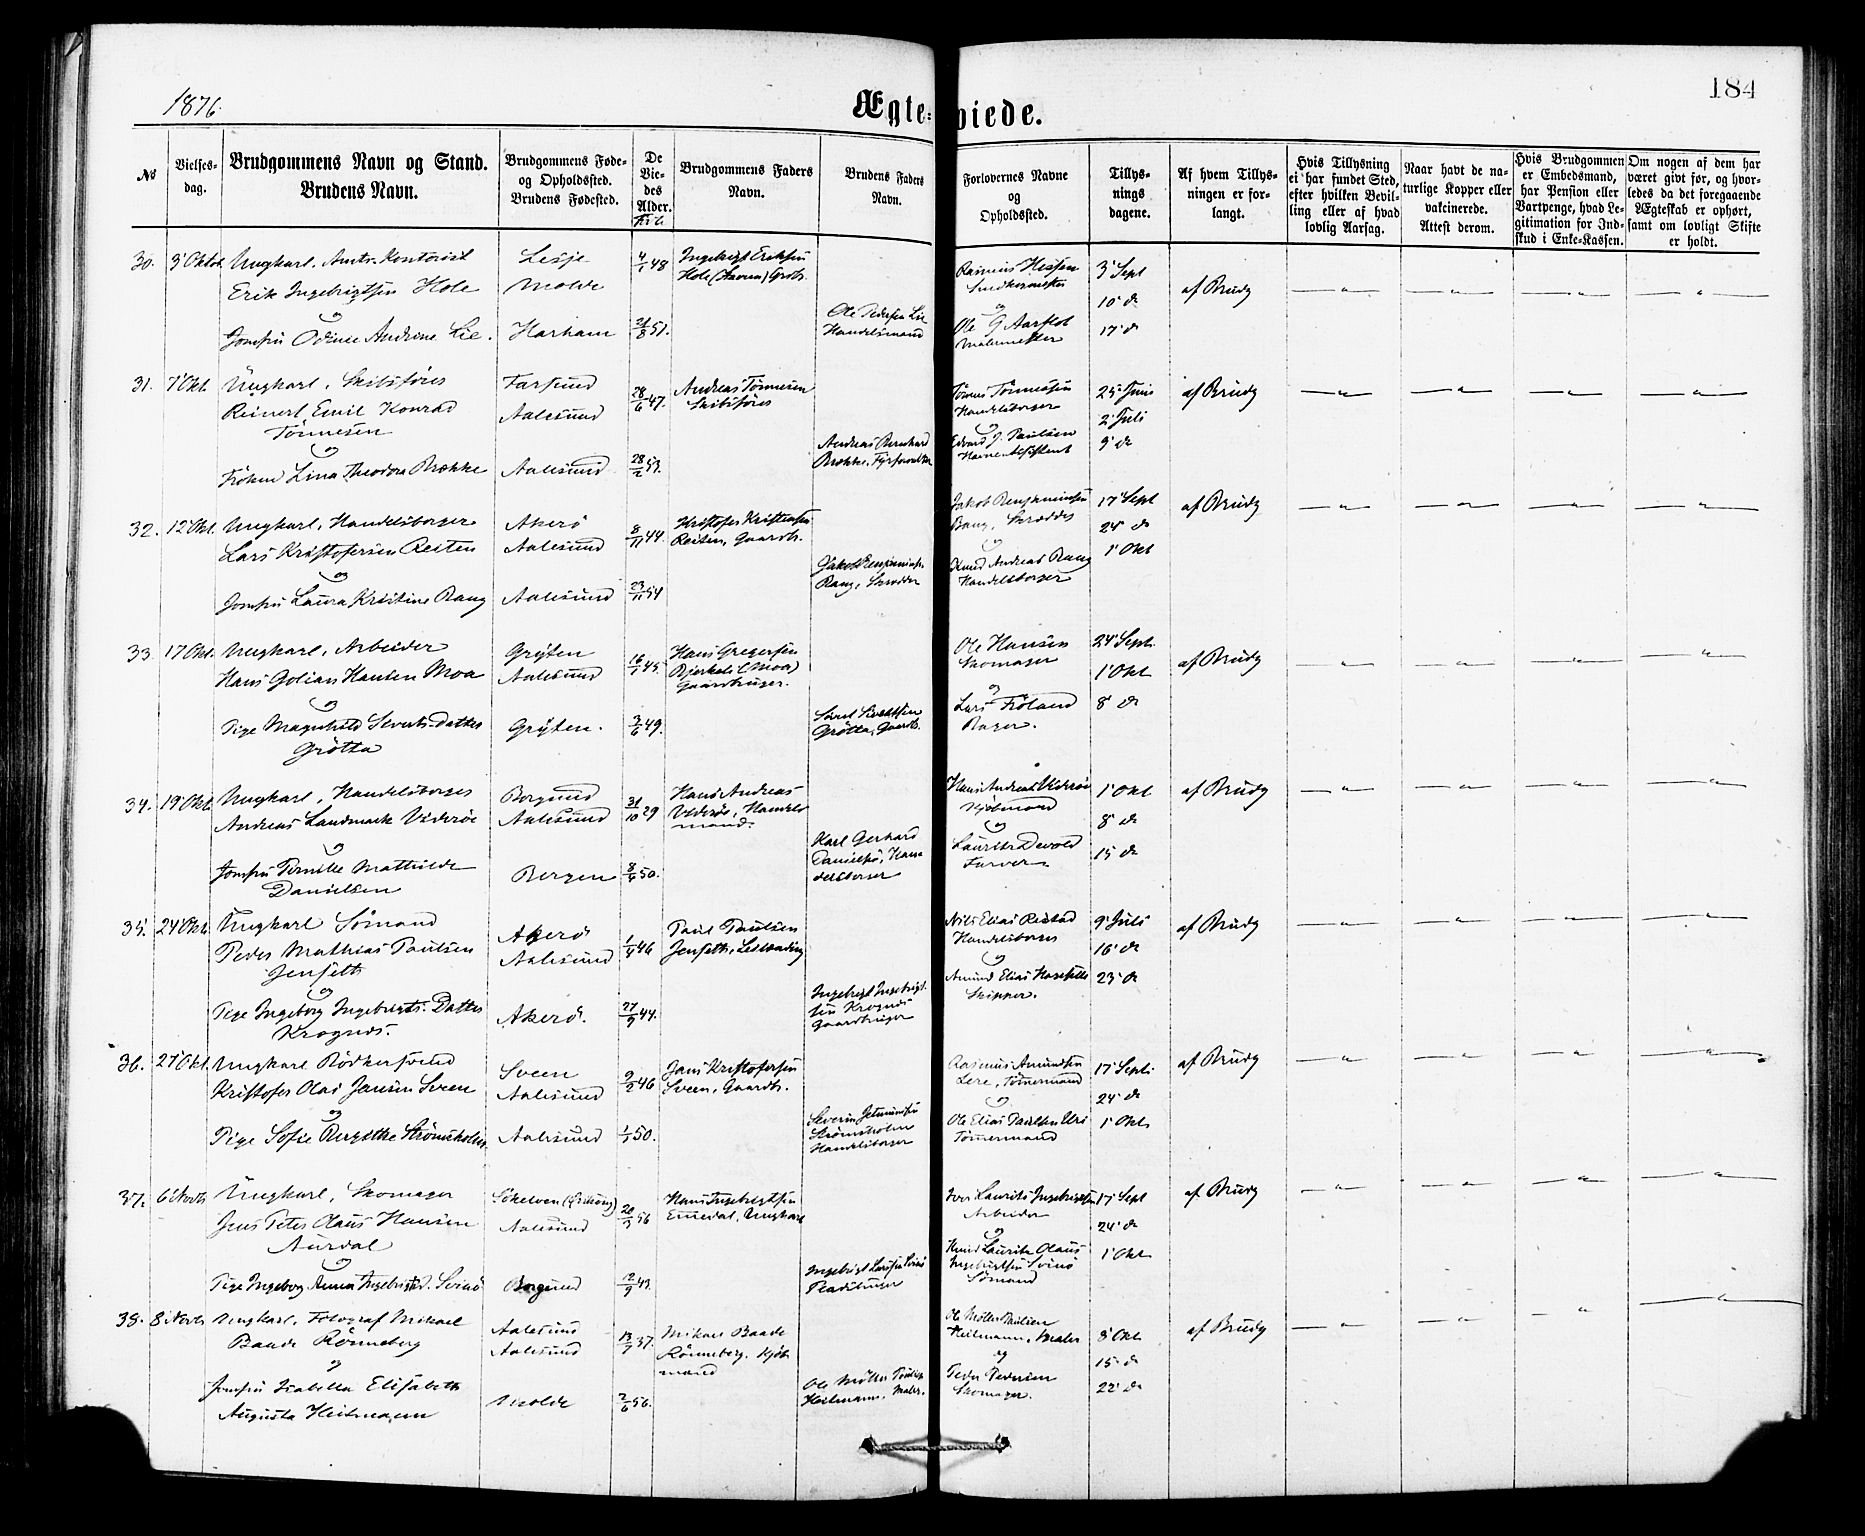 1876.
Ægteviede.
184
No
Vielses-
dag.
Brudgommens Navn og Stand.
Brudens Navn.
Brudgommens Føde-
og Opholdssted.
Brudens Fødested.
De
Vie-
des
Alder.
Brudgommens Faders
Navn.
Brudens Faders
Navn.
Forlovernes Navne
og
Opholdssted.
Tillys-
nings
dagene.
Af hvem Tillys-
ningen er for-
langt.
Hvis Tillysning
ei har fundet Sted,
efter hvilken Bevil-
ling eller af hvad
lovlig Aarsag.
Naar havt de na-
turlige Kopper eller
vakcinerede.
Attest derom.
Hvis Brudgommen
er Embedsmand,
har Pension eller
Vartpenge, hvad Le-
gitimation for Ind-
skud i Enke-Kassen.
Om nogen af dem har
været givt før, og hvor-
ledes da det foregaaende
Ægteskab er ophørt,
samt om lovligt Skifte
er holdt.
30. 3' Oktob. Ungkarl, Amts-Kontorist
Erik Ingebrigtsen Hole
og
Jomfru Odine Andrine Lie.
Lesje
Molde
Harham
4/1 48
21/8 51.
Ingebrigt Eriksen
Hole
Ole Pedersen Lie
Handelsmand
Rasmus
og
Ole G Aarflot
Malermester
3' Sept
10' do
17' d
af Brudg
31. 7' Okt. Ungkarl, Skibsfører
Reinert Emil Konrad
Tönnesen
og
Fröken Lina Theodora Brække
Farsund
Aalesund
Aalesund
28/6 47.
28/2 53.
Andreas Tönnesen
Skibsförer
Andreas Bernhard
Brække, Fyrforvalter
Tönnes Tönnesen
Handelsborger
og
Edvard J. Paulsen
Havne-Assistent
25' Juni
2' Juli
9' do
af Brudg
32. 12' Okt. Ungkarl, Handelsborger
Lars Kristofersen Reiten
og
Jomfru Laura Kristine Bang
Akerö
Aalesund
Aalesund
8/11 44.
23/11 54
Kristofer Kristensen
Reiten, Gaardb.
Jakob Benjaminsen
Bang, Skrædder
Jakob Benjaminsen
Bang, Skrædder
og
Knud Andreas Bang
Handelsborger
17' Sept
24' do
1' Okt
af Brudg
33 17 Okt. Ungkarl, Arbeider
Hans Golias Hansen Moa
og
Pige Magnhild Siverts-Datter
Grötta
Gryten
Aalesund
Gryten.
16/1 45.
3/6 49.
Hans Gregersen
Bjerkeli (Moa)
Gaardbruger.
Sivert Sivertsen
Grötta, Gaardb.
Ole Hansen
Skomager
og
Lars Fröland
Bager.
24' Sept.
1' Okt
8' do
af Brudg
34. 19' Okt Ungkarl, Handelsborger
Andreas Landmark Videröe
og
Jomfru Pernille Mathilde
Danielsen
Borgund
Aalesund
Bergen
31/10 29
8/4 50.
Hans Andreas
Videröe, Handels-
mand.
Karl Gerhard
Danielsen, Han-
delsborger
Hans Andreas Videröe
Kjöbmand
og
Laurits Devold
Farver
1' Okt
8' do
15' do
af Brudg
35. 24' Okt. Ungkarl Sömand
Peder Mathias Paulsen
Jenseth
og
Pige Ingeborg Ingebrigts. Datter
Krognes.
Akerö
Aalesund
Akerö.
1/4 46
27/9 44.
Paul Paulsen
Jenseth,
Ingebrigt Ingebrigt-
sen Krognes
Gaardbruger
Nils Elias Restad
Handelsborger
og
Amund Elias
Skipper.
9' Juli
16' do
23' do
af Brudg
36. 27' Okt. Ungkarl Bödkersvend
Kristofer Olai Jansen Sveen
og
Pige Sofie Birgithe Strömsholm
Sveen
Aalesund
Aalesund
9/2 46
1/1 50.
Jans Kristofersen
Sveen, Gaardb.
Severin
Strömsholm
Handelsborger
Rasmus Amundsen
Lere, Tömermand
og
Ole Elias Paulsen
Tömermand
17' Sept.
24' do
1' Okt.
af Brudg
37. 6' Novb Ungkarl, Skomager
Jens Peter Olaus Hansen
Aurdal
og
Pige Ingeborg Anna Ingebrigtsd. Svinö
Sökelven
Aalesund
Borgund
20/3 56
12/9 43.
Hans Ingebrigtsen
Emedal, Ungkarl
Ingebrigt Larsen Svinö
Pladsbruger
Iver Laurits Ingebrigtsen
Arbeider
og
Knud Laurits Olaus
Ingebrigtsen Svinö
Sömand
17' Sept
24' do
1' Okt
af Brudg
38. 8' Novb Ungkarl, Fotograf Mikael
Baade Rönneberg
og
Jomfru Isabella Elisabeth
Augusta Heitmann
Aalesund
Aalesund
Molde
13/7 37.
2/6 56.
Mikael Baade
Rönneberg. Kjöb-
mand
Ole Möller
Heitmann, Maler.
Ole Möller
Heitmann, Maler
og
Peder Pedersen
Skomager.
8' Okt
15' do
22' do
af Brudg